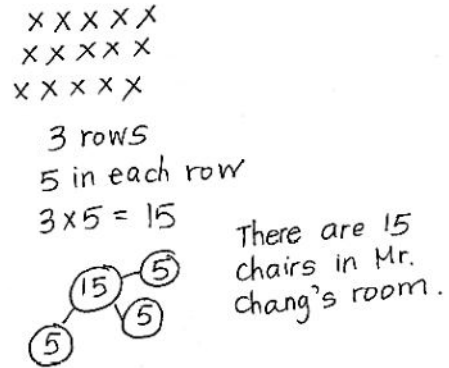 x x x x x
x x x x x
x x x x x
3 rows
5 in each row
3 x 5 = 15
15
5
5
5
There are 15
chairs in Mr.
Chang's room.